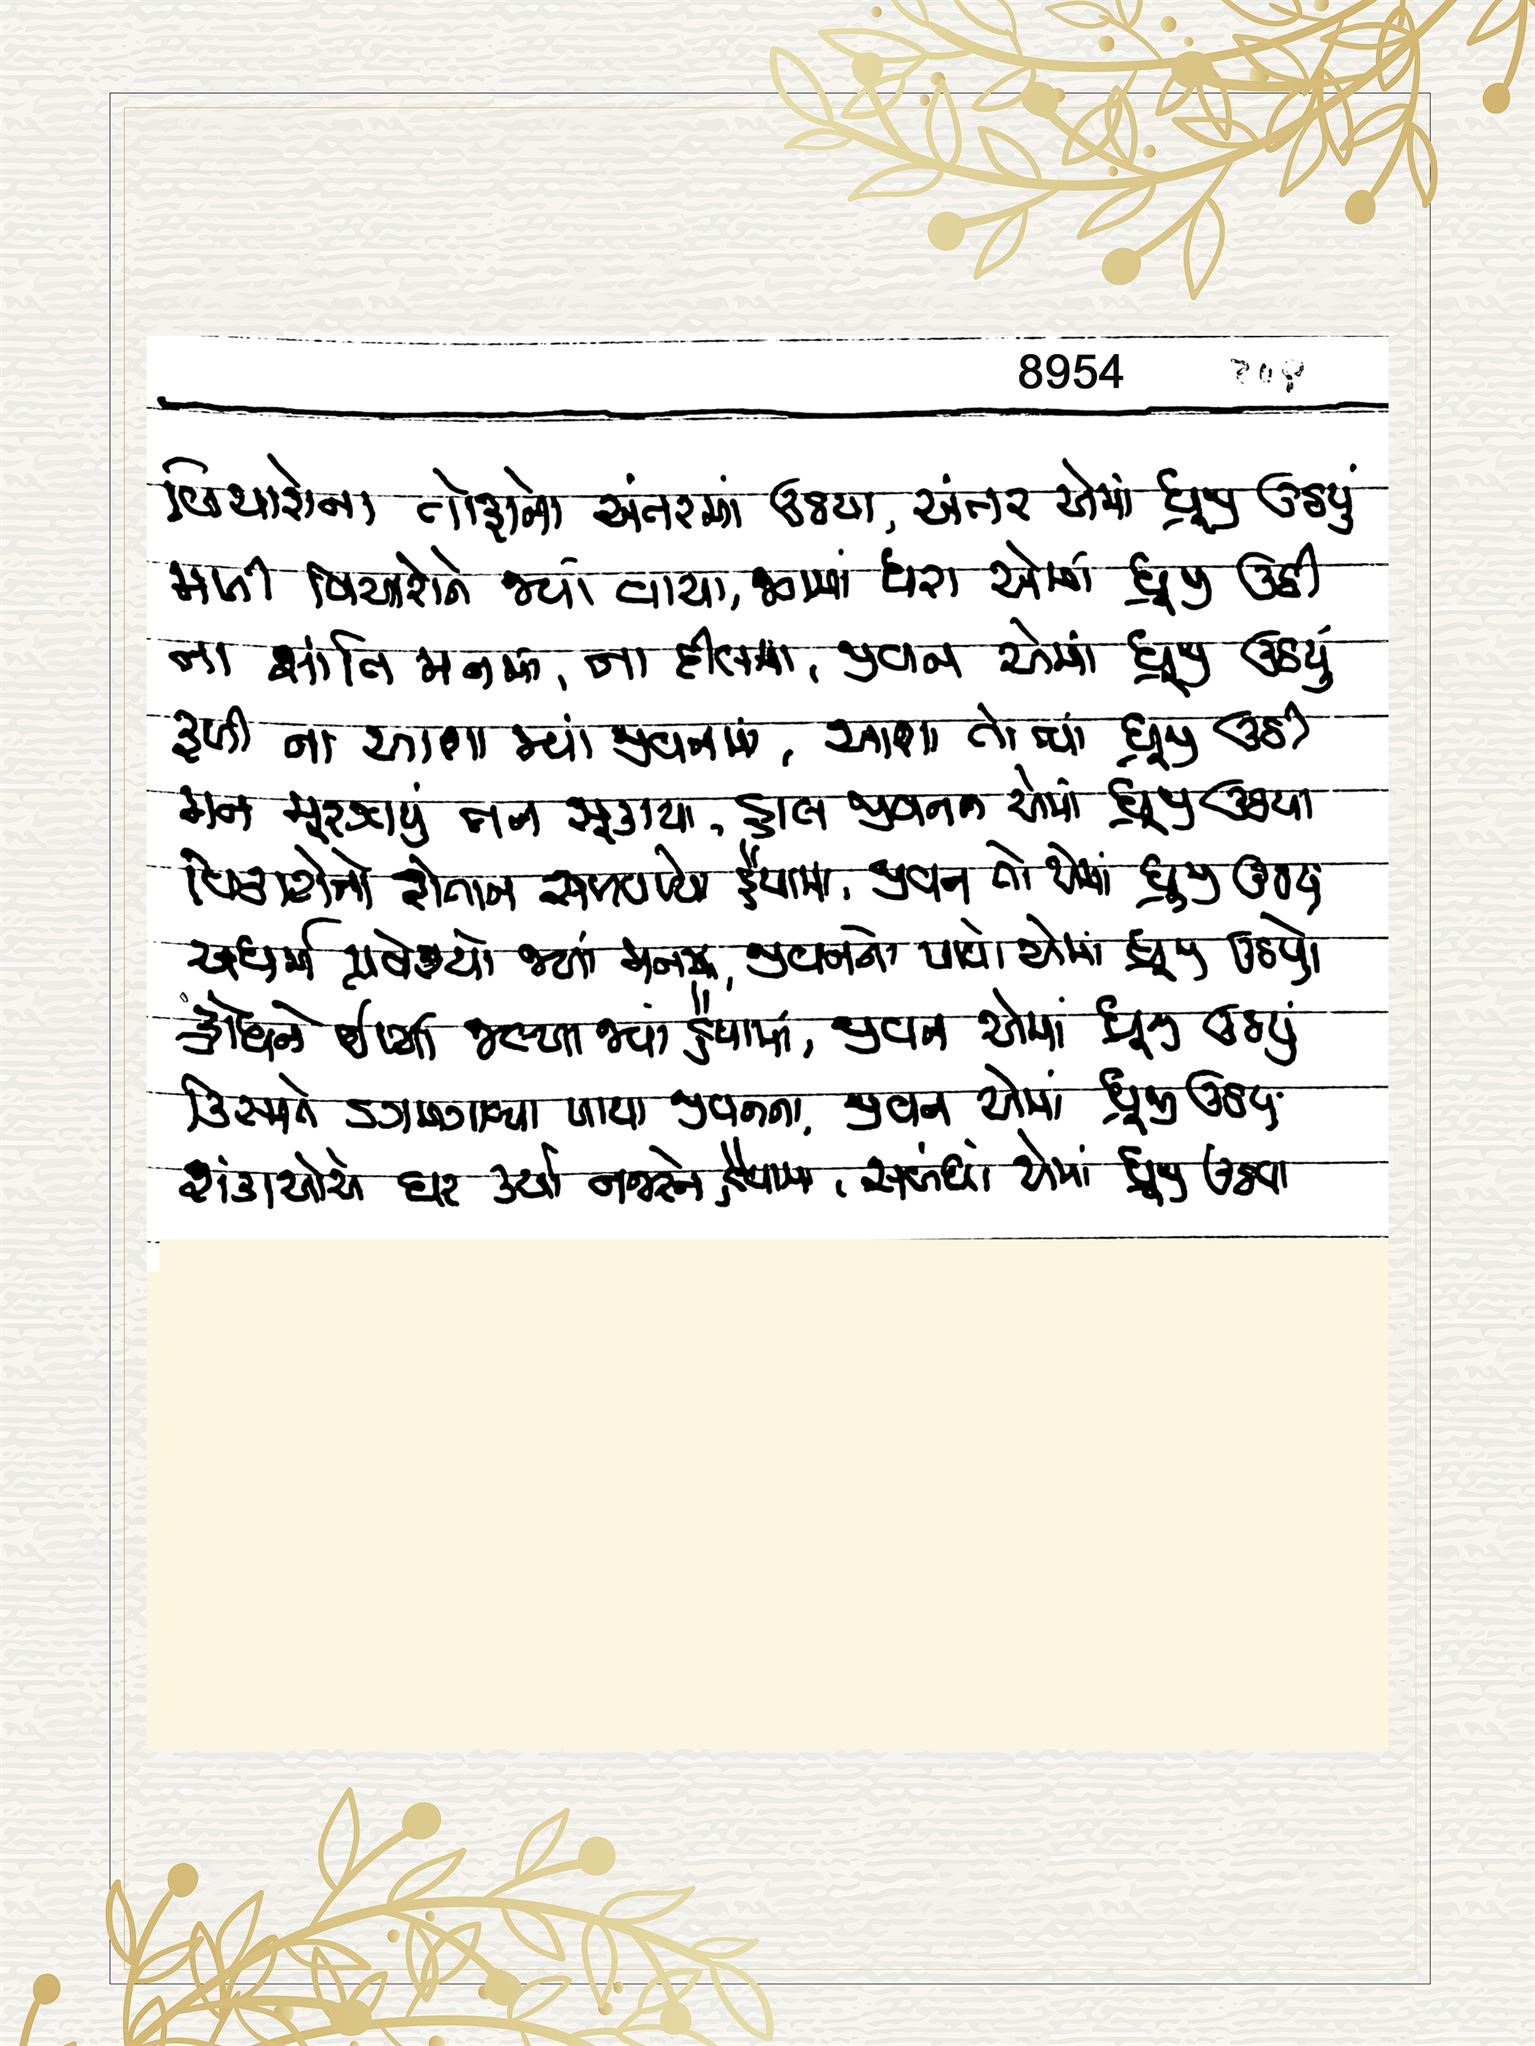 8954
વિચારોના તોફાનો અંતરમાં ઉઠયા, અંતર એમાં ધ્રૂજી ઉઠયું
મળી વિચારોને જ્યાં વાચા, જામાં ધરા એમાં ધ્રૂજી ઉઠી
ના શાંતિ મનમાં, ના દીલમાં, જીવન એમાં ધ્રૂજી ઉઠયું
ફળી ના આશા જ્યાં જીવનમાં, આશા તો ત્યાં ધ્રૂજી ઉઠી
મન મૂરઝાયું તન સૂકાયા, હાલ જીવનના એમાં ધ્રૂજી ઉઠયા
વિકારોનો શેતાન હૈયામાં, જીવન તો એમાં ધ્રુજી ઉઠયું
અધર્મ પ્રવેશ્યો જ્યાં મનમાં, જીવનનો પાયો એમાં ધ્રૂજી ઉઠયો
ક્રોધને ઈર્ષ્યા જલ્યા જ્યાં હૈયામાં, જીવન એમાં ધ્રૂજી ઉઠયું
કિસ્મતે ડગમગાવ્યા પાયા જીવનના, જીવન એમાં ધ્રૂજી ઉઠયું
શંકાઓએ ઘર કર્યા હૈયામાં, સબંધો એમાં ધ્રૂજી ઉઠયા